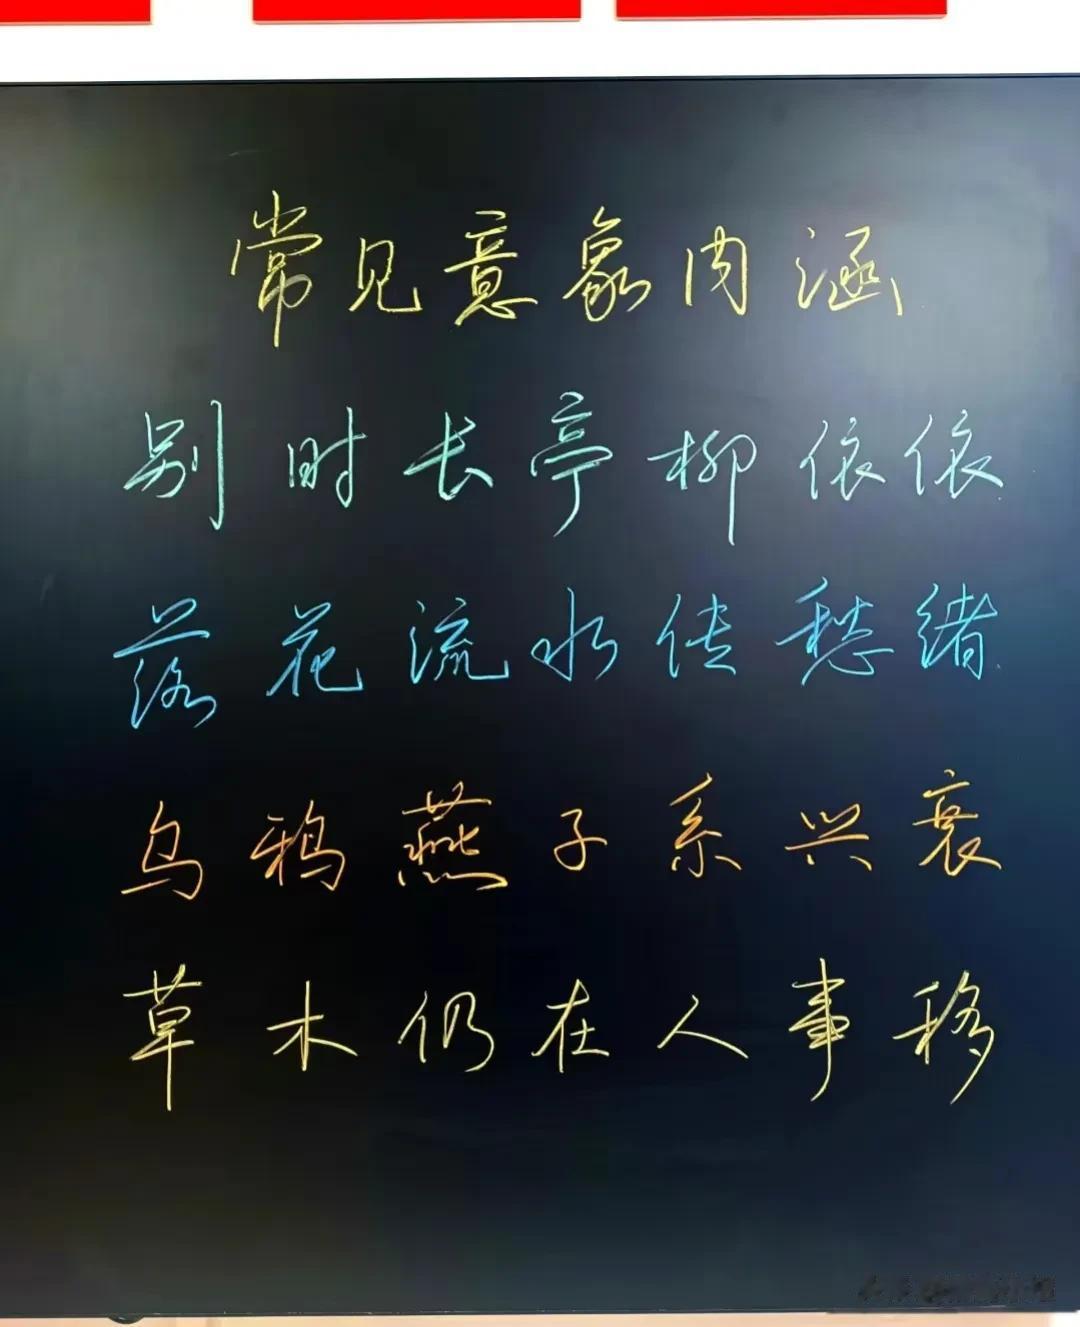 常见意象内涵
别时长亭柳依依
落花流水传愁绪
乌鸦燕子系兴衰
草木仍在人事移